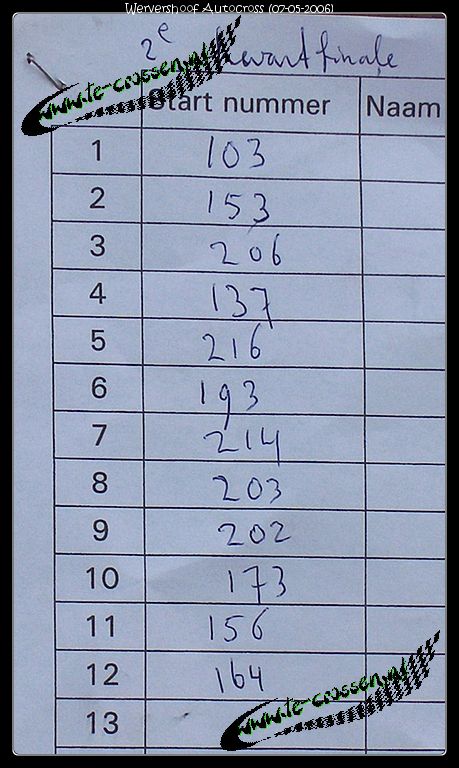 Wervershoof Autocross (07-05-2006)
2e kwartfinale
www.te-crossen.nl
Start nummer Naam
1 103
2 153
3 206
4 137
5 216
6 193
7 214
8 203
9 202
10 173
11 156
12 164
13
www.te-crossen.nl